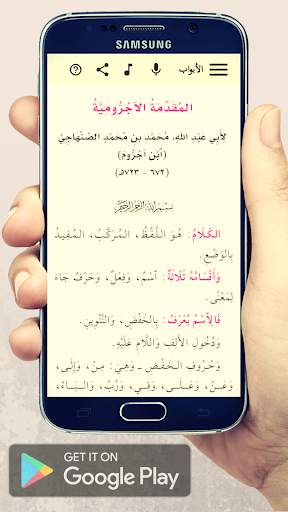 SAMSUNG
الأبواب
المُقَدِّمَةُ الآجُرُّومِيَّةُ
لِأَبِي عَبْدِ اللهِ، مُحَمَّدِ بنِ مُحَمَّدٍ الصِّنْهَاجِيِّ
(ٱبْنِ آجُرُّوم)
(٦٧٢ - ٧٢٣هـ)
بِسْمِ اللهِ الرَّحْمَنِ الرَّحِيمِ
الكَلَامُ: هُوَ اللَّفْظُ، المُرَكَّبُ، المُفِيدُ
بِالْوَضْعِ.
وَأَقْسَامُهُ ثَلَاثَةٌ: ٱسْمٌ، وَفِعْلٌ، وَحَرْفٌ جَاءَ
لِمَعْنًى.
فَالِٱسْمُ يُعْرَفُ: بِالخَفْضِ، وَالتَّنْوِينِ،
وَدُخُولِ الأَلِفِ وَاللَّامِ عَلَيْهِ.
وَحُرُوفِ الخَفْضِ - وَهِيَ: مِنْ، وَإِلَى،
وَعَنْ، وَعَلَى، وَفِي، وَرُبَّ، وَالبَاءُ،
GET IT ON
Google Play